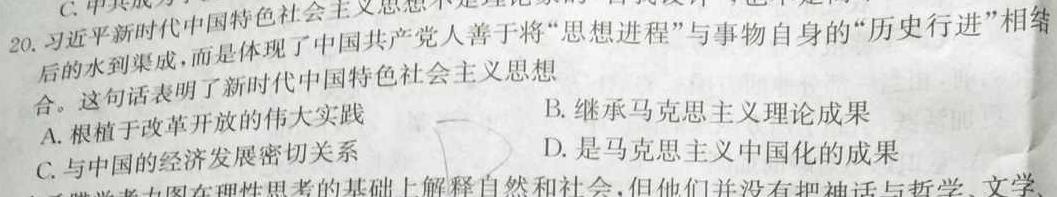 C. 中共成为
20. 习近平新时代中国特色社会主义思想不是理论家的“自我设计”,也不是
后的水到渠成,而是体现了中国共产党人善于将“思想进程”与事物自身的“历史行进”相结
合。这句话表明了新时代中国特色社会主义思想
A. 根植于改革开放的伟大实践
B. 继承马克思主义理论成果
C. 与中国的经济发展密切关系
D. 是马克思主义中国化的成果
学者力图在理性思考的基础上解释自然和社会,但他们并没有把神话与哲学、文学、